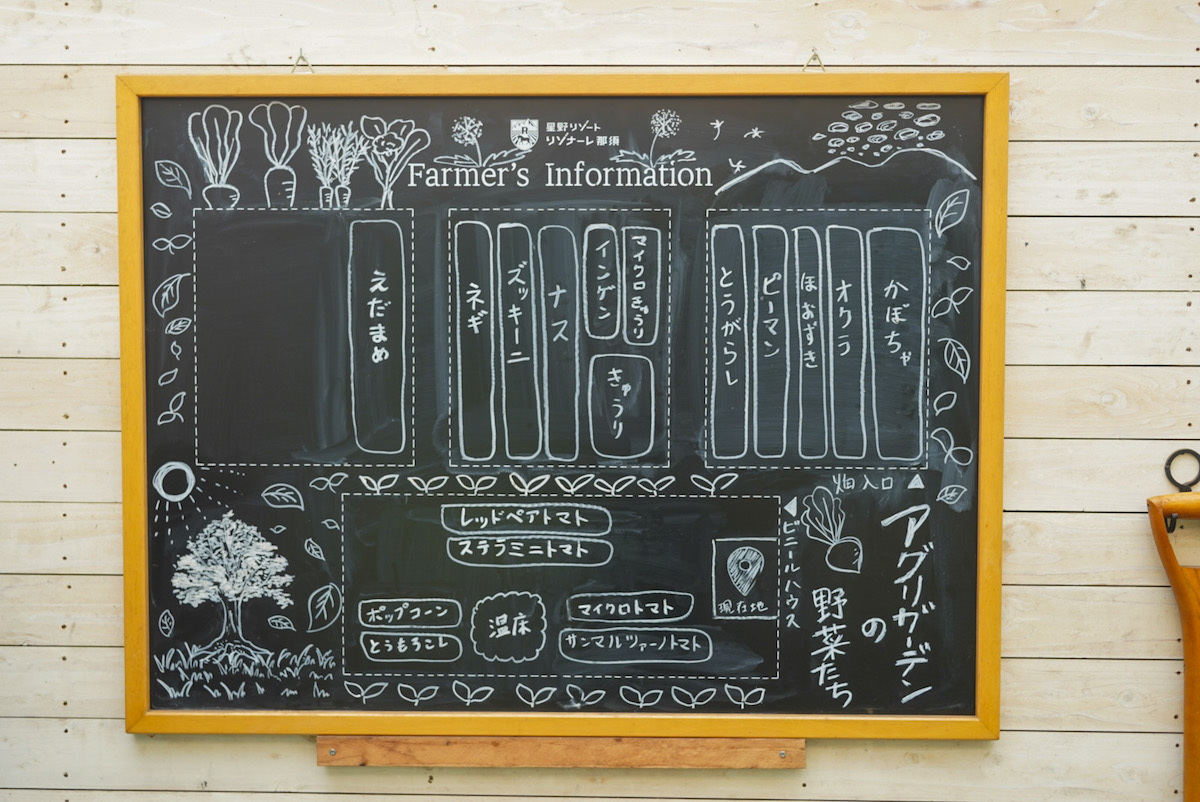 星野リゾート
リゾナーレ那須
Farmer's Information
えだまめ
ネギ
ズッキーニ
ナス
インゲン
マイクロきゅうり
きゅうり
とうがらし
ピーマン
ほおずき
オクラ
かぼちゃ
畑入口
レッドペアトマト
ステラミニトマト
ポップコーン
とうもろこし
温床
マイクロトマト
サンマルツァーノトマト
現在地
ビニールハウス
アグリガーデン
の
野菜たち